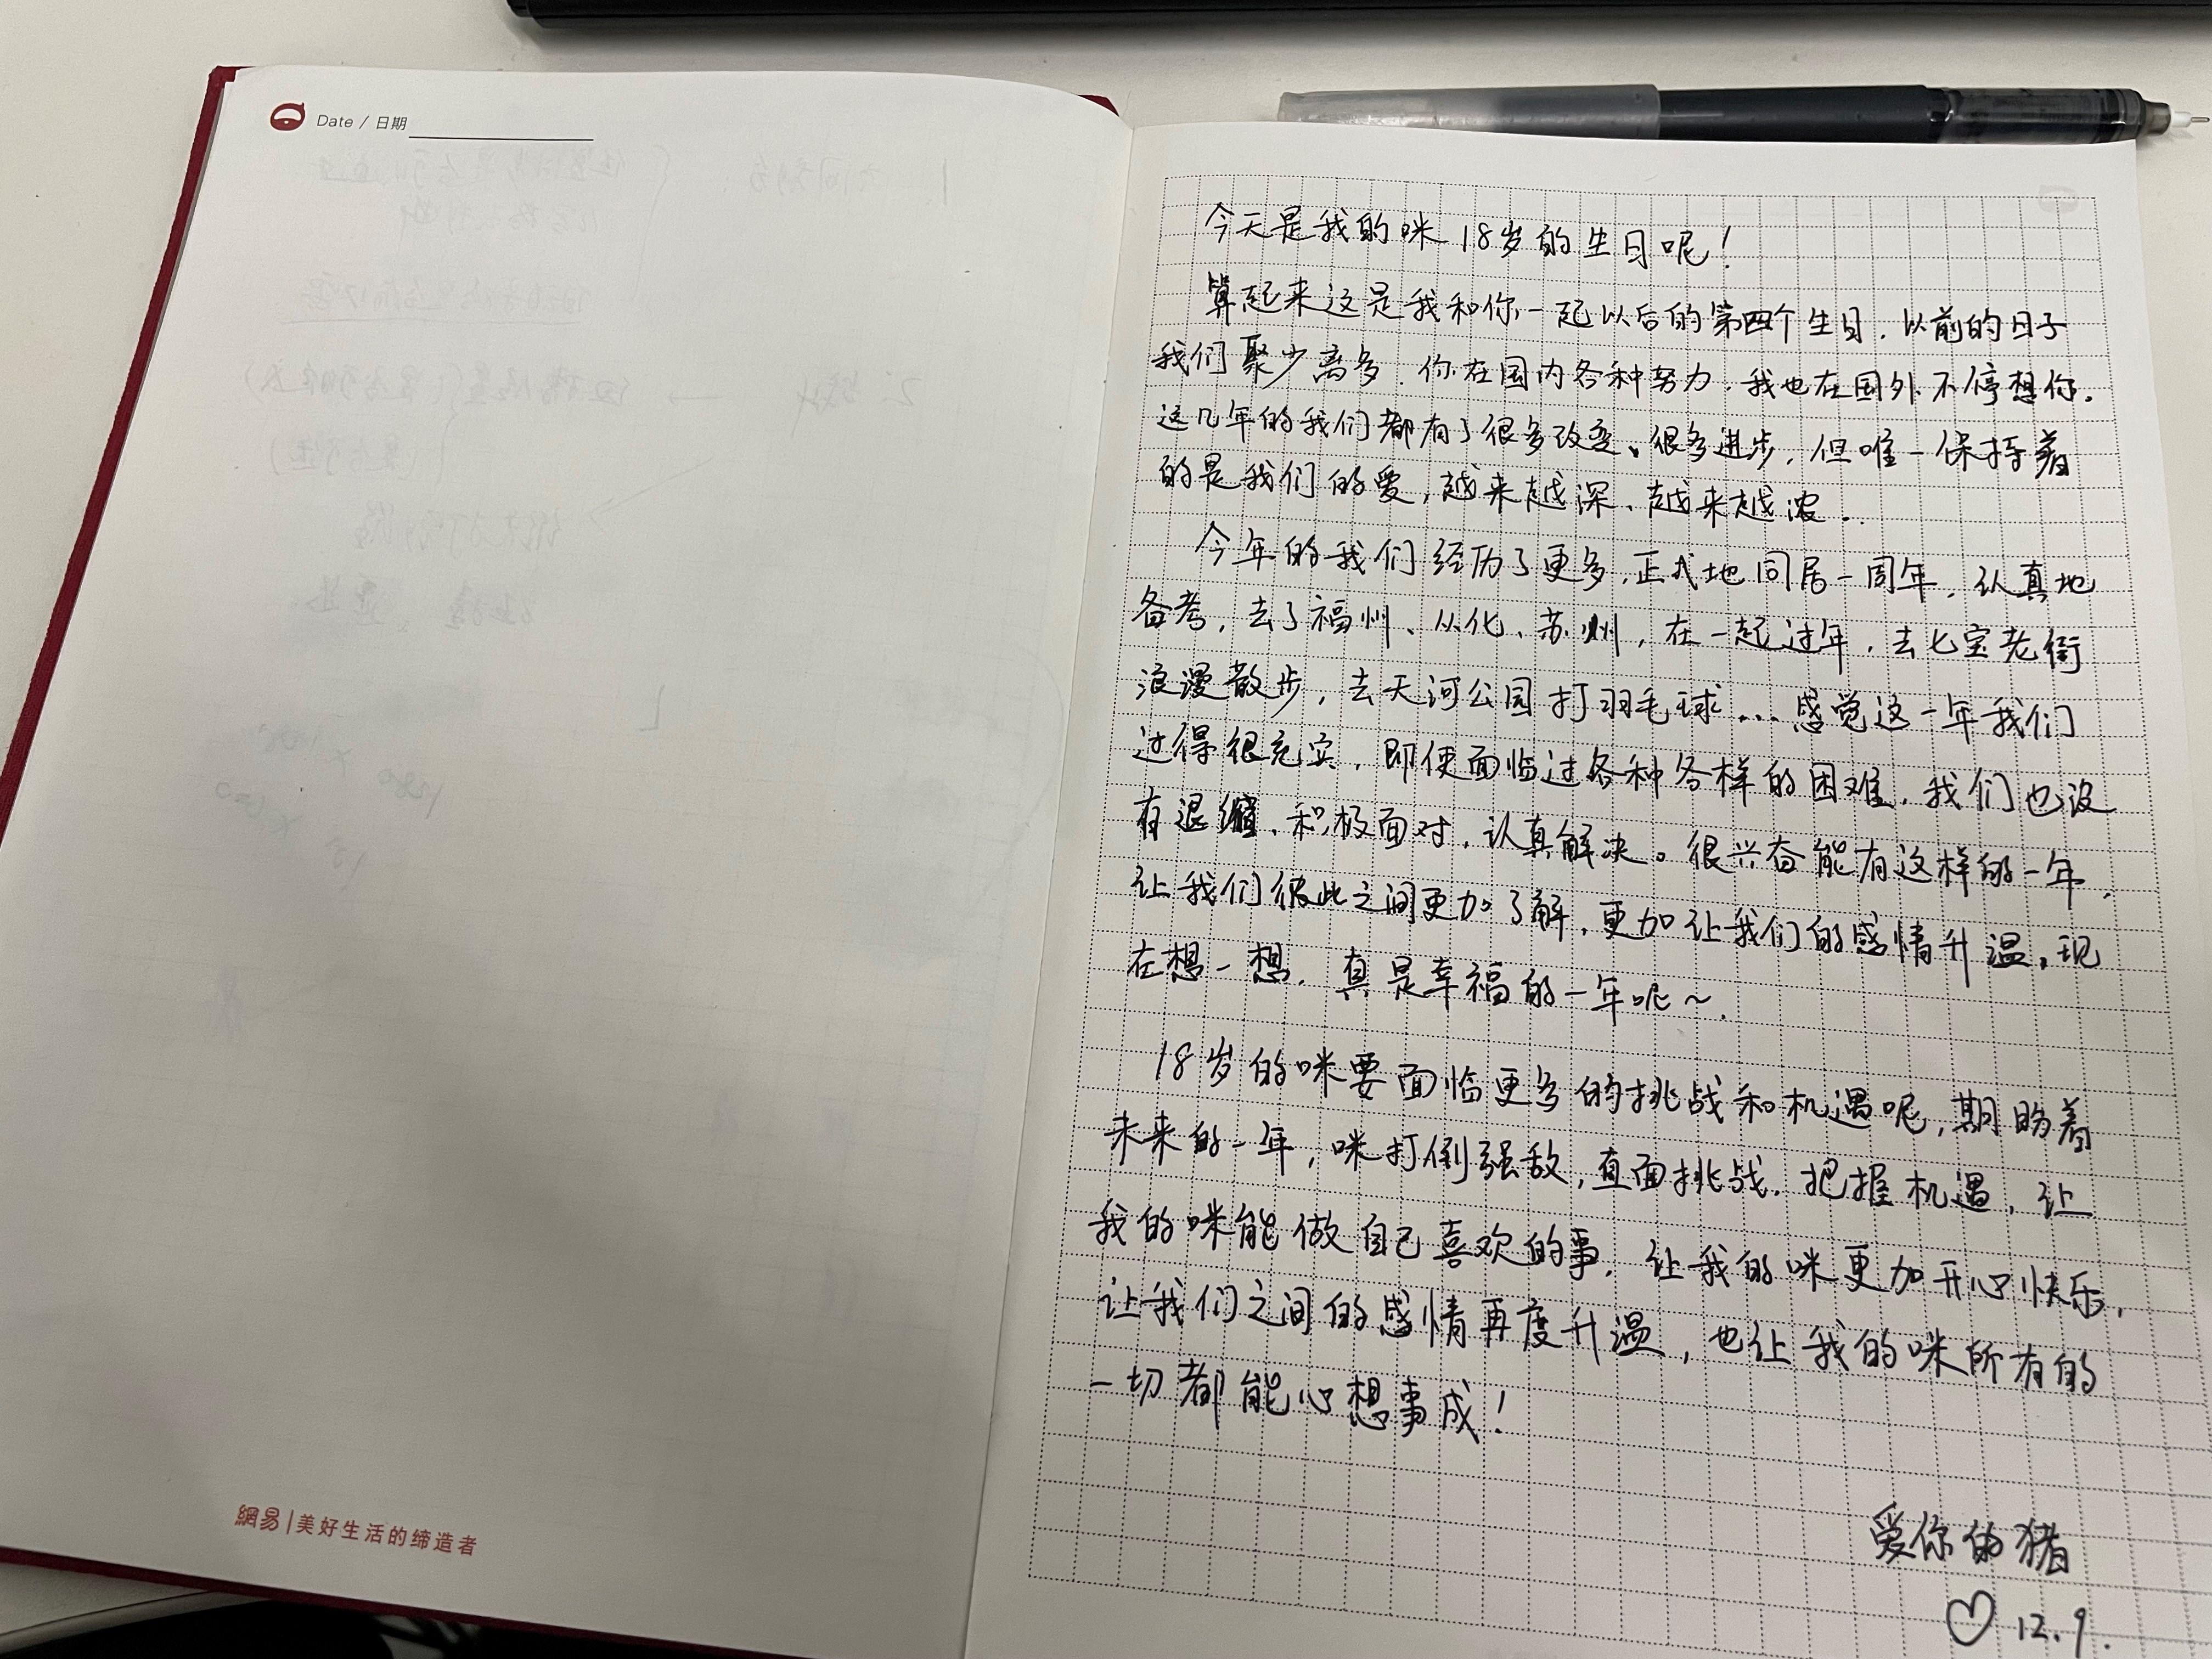 Date / 日期
網易|美好生活的缔造者
今天是我的咪18岁的生日呢！
算起来这是我和你一起以后的第四个生日，以前的日子
我们聚少离多，你在国内各种努力，我也在国外不停想你。
这几年的我们都有了很多改变、很多进步，但唯一保持着
的是我们的爱，越来越深、越来越浓。
今年的我们经历了更多，正式地同居一周年，认真地
备考，去了福州、从化、苏州，在一起过年，去七宝老街
浪漫散步，去天河公园打羽毛球...感觉这一年我们
过得很充实，即便面临过各种各样的困难，我们也没
有退缩、积极面对，认真解决。很兴奋能有这样的一年，
让我们彼此之间更加了解，更加让我们的感情升温，现
在想一想，真是幸福的一年呢～.
18岁的咪要面临更多的挑战和机遇呢，期盼着
未来的一年，咪打倒强敌，直面挑战，把握机遇，让
我的咪能做自己喜欢的事，让我的咪更加开心快乐，
让我们之间的感情再度升温，也让我的咪所有的
一切都能心想事成！
爱你的猪
♡ 12.9.